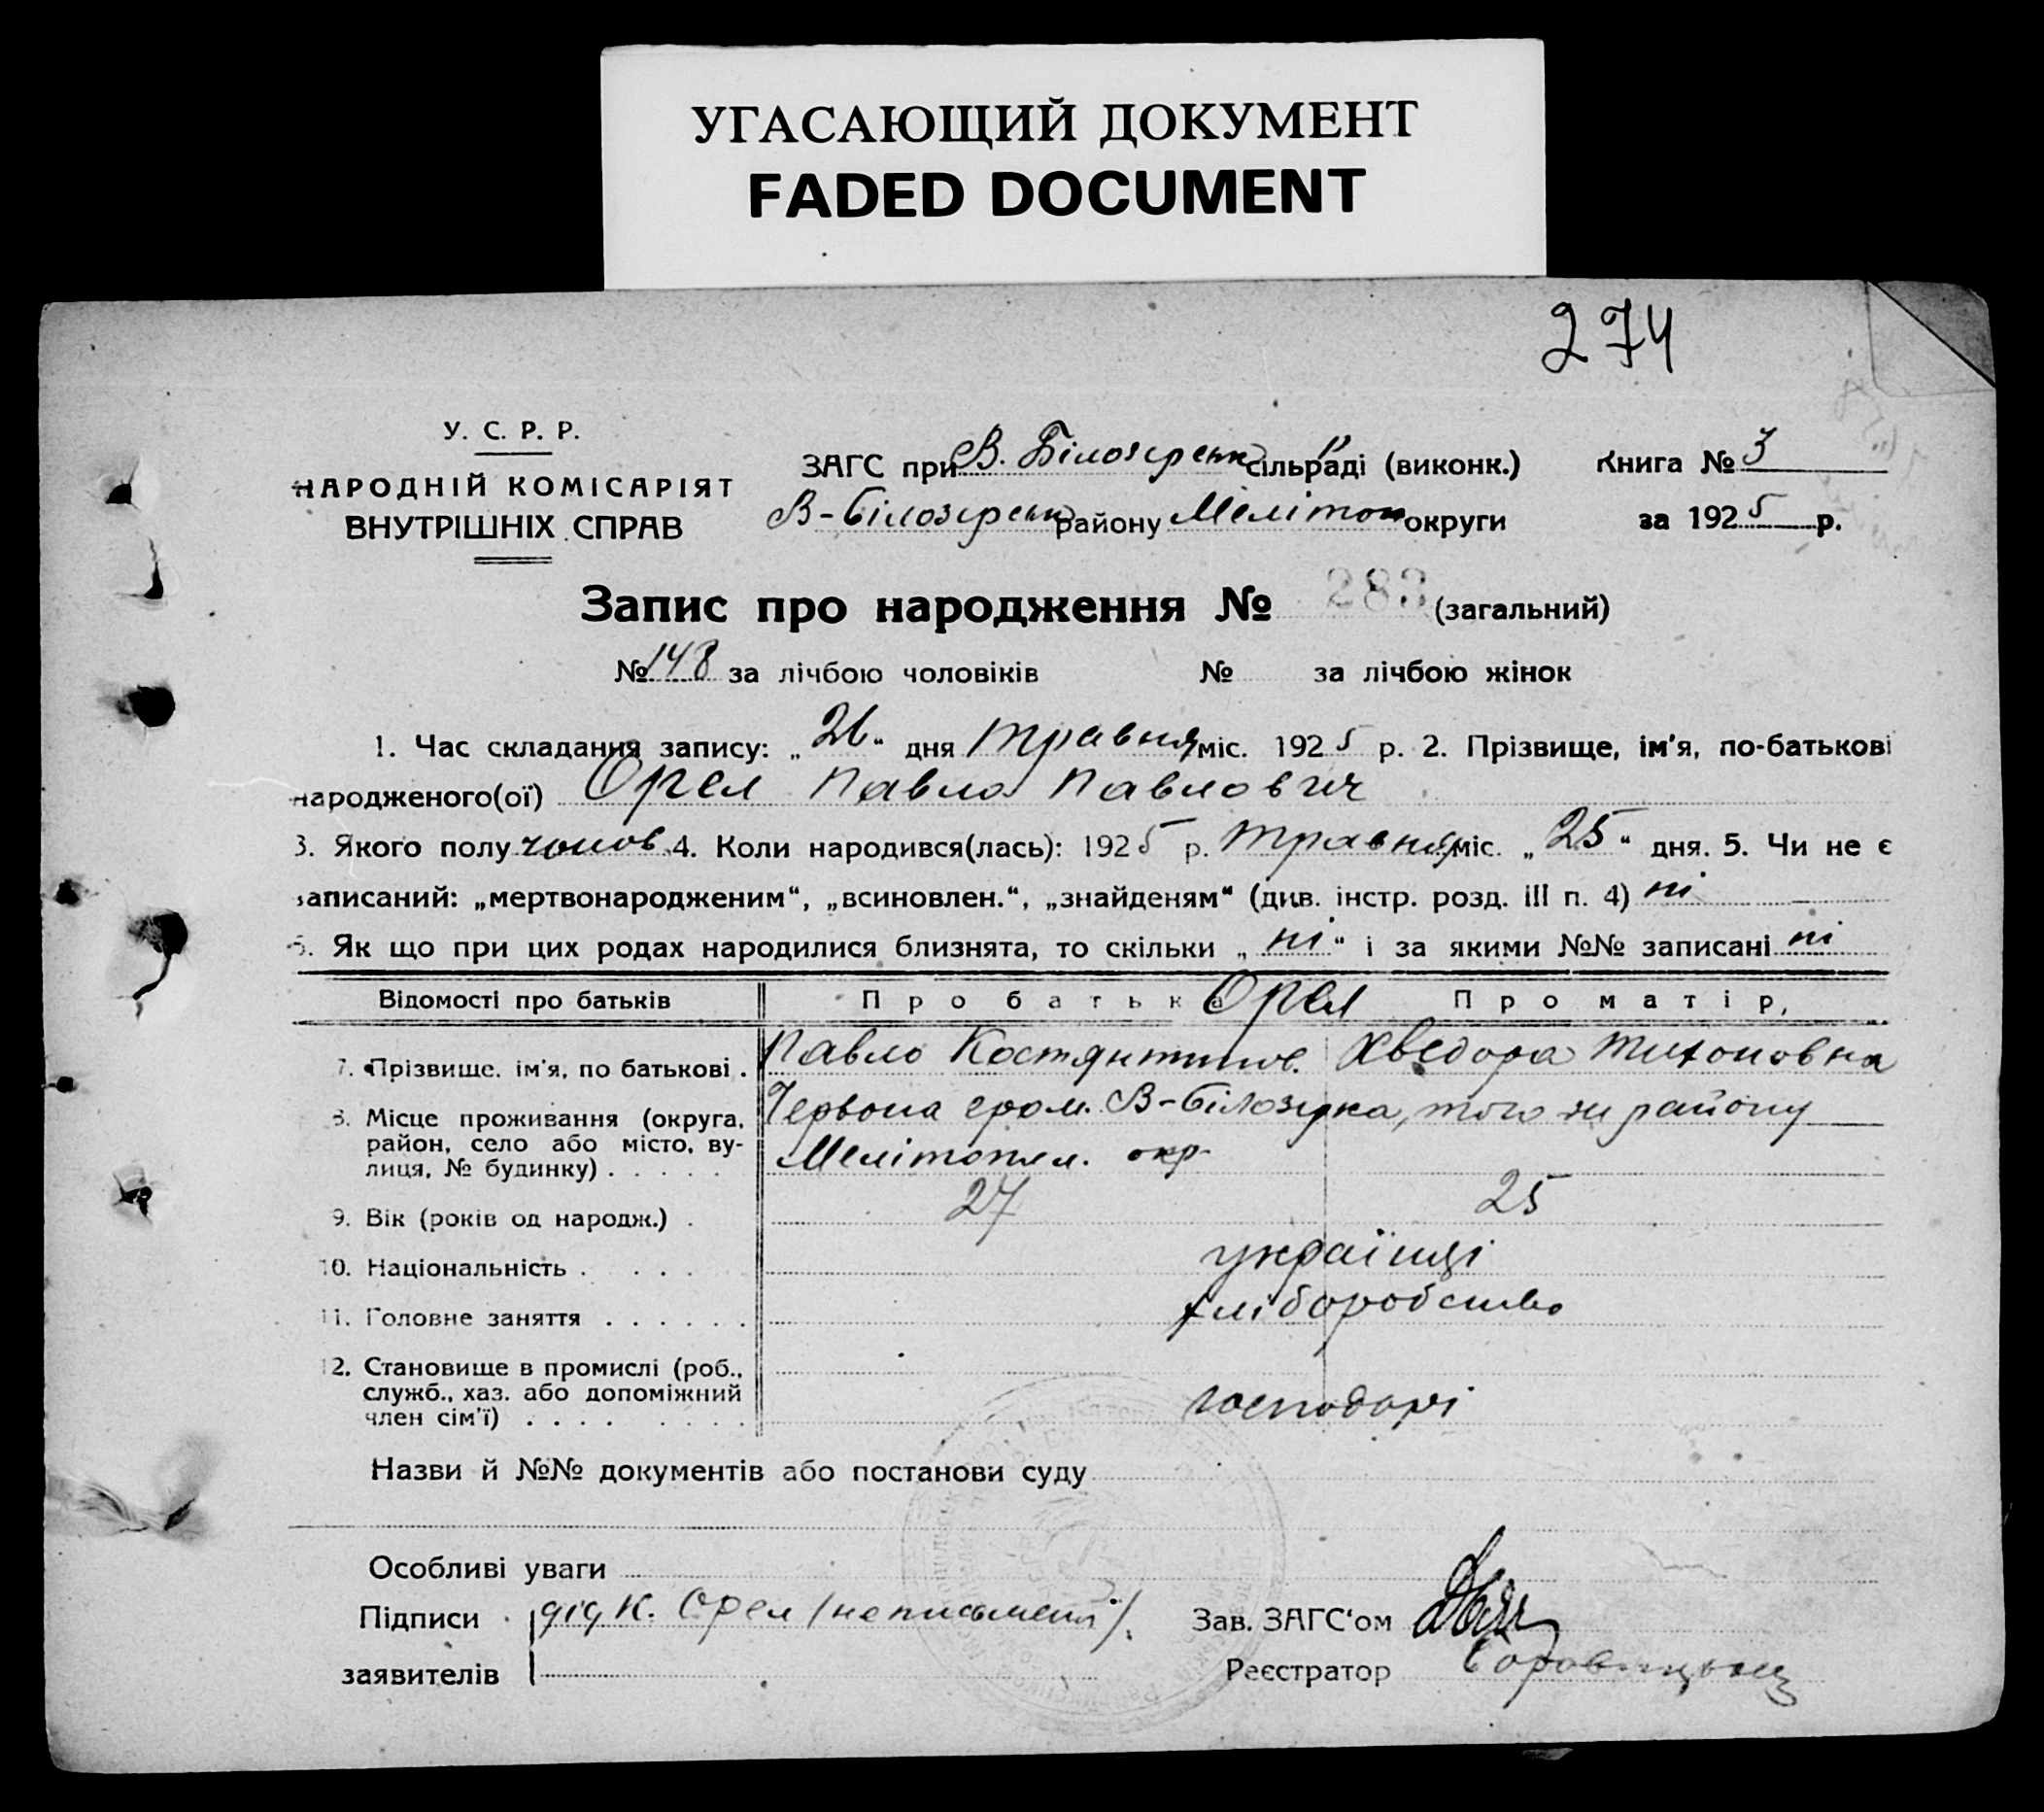 УГАСАЮЩИЙ ДОКУМЕНТ
FADED DOCUMENT
274
У. С. Р. Р.
НАРОДНІЙ КОМІСАРІЯТ
ВНУТРІШНІХ СПРАВ
ЗАГС при В. Білозерськ сільраді (виконк.) Книга № 3
В-Білозерськ району Мелітоп округи за 1925 р.
Запис про народження № 283 (загальний)
№ 148 за лічбою чоловіків № за лічбою жінок
1. Час складання запису: „26“ дня травня міс. 1925 р. 2. Прізвище, ім'я, по-батькові
народженого(ої) Орел Павло Павлович
3. Якого полу чолов. 4. Коли народився(лась): 1925 р. травня міс. „25“ дня. 5. Чи не є
записаний: „мертвонародженим“, „всиновлен.“, „знайденям“ (див. інстр. розд. III п. 4) ні
6. Як що при цих родах народилися близнята, то скільки „ні“ і за якими №№ записані ні
Відомості про батьків Про батька Орел Про матір,
7. Прізвище, ім'я, по батькові . Павло Костянтинов. Хведора Тихоновна
8. Місце проживання (округа, Червона гром. В-Білозірка, того ж району
район, село або місто, ву- Мелітопел. окр.
лиця, № будинку) . . . . .
9. Вік (років од народж.) . 27 25
10. Національність . . . . українці
11. Головне заняття . . . . . . хліборобство
12. Становище в промислі (роб.,
служб., хаз. або допоміжний господарі
член сім'ї) . . . . . . . .
Назви й №№ документів або постанови суду
Особливі уваги
Підписи дід К. Орел /неписьмений/. Зав. ЗАГС'ом
заявителів Реєстратор